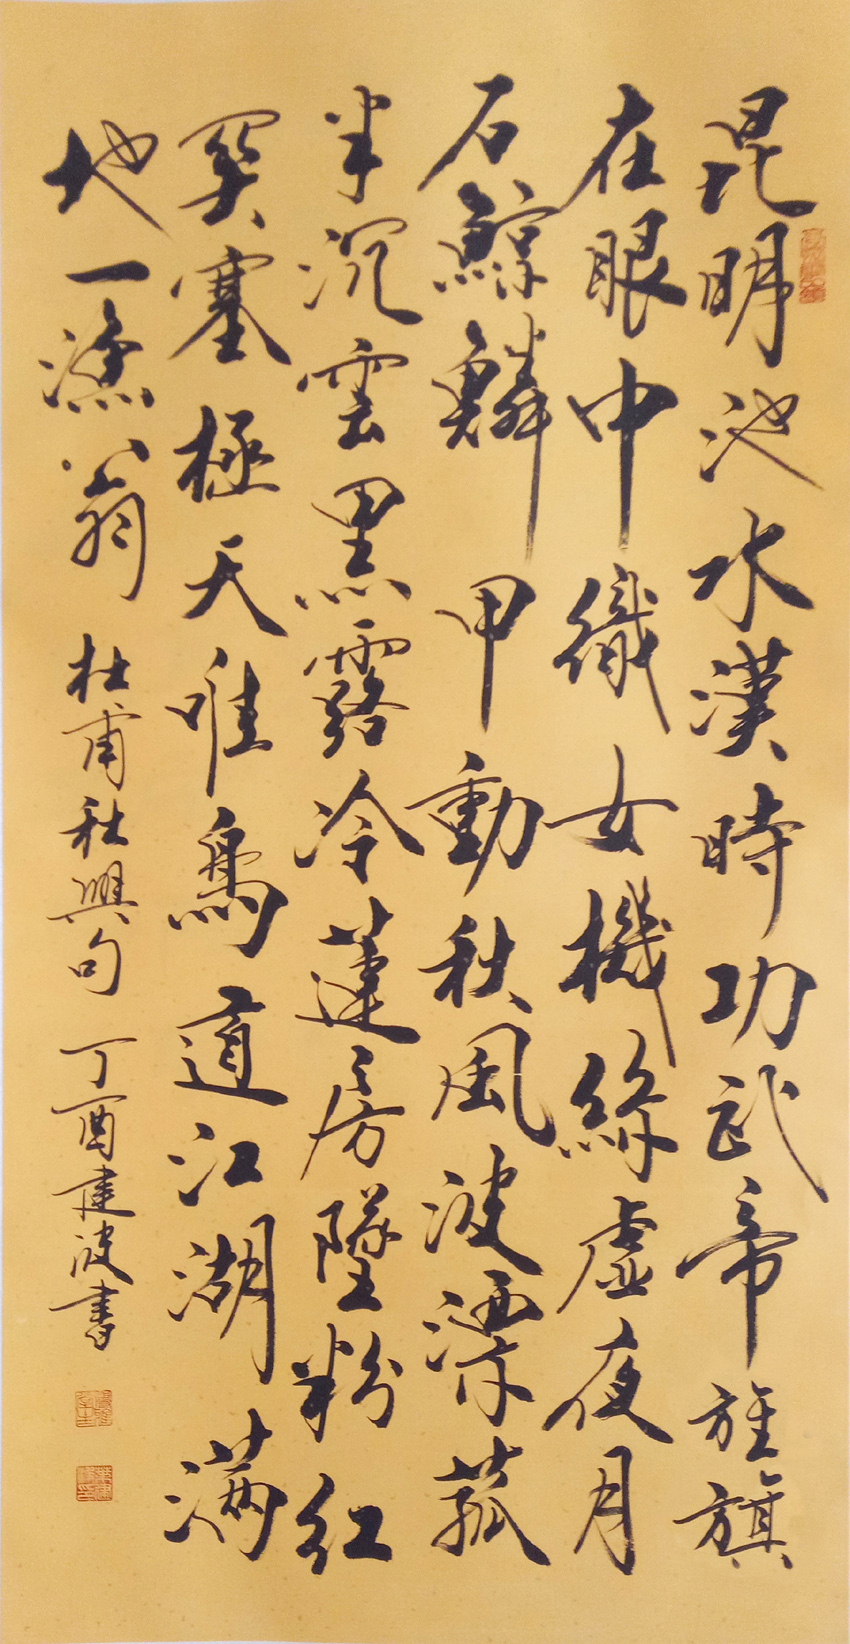 昆明池水漢時功武帝旌旗
在眼中織女機絲虚夜月
石鯨鱗甲動秋風波漂菰
米沉雲黑露冷蓮房墜粉紅
関塞極天唯鳥道江湖滿
地一漁翁 杜甫秋興句 丁酉建波書